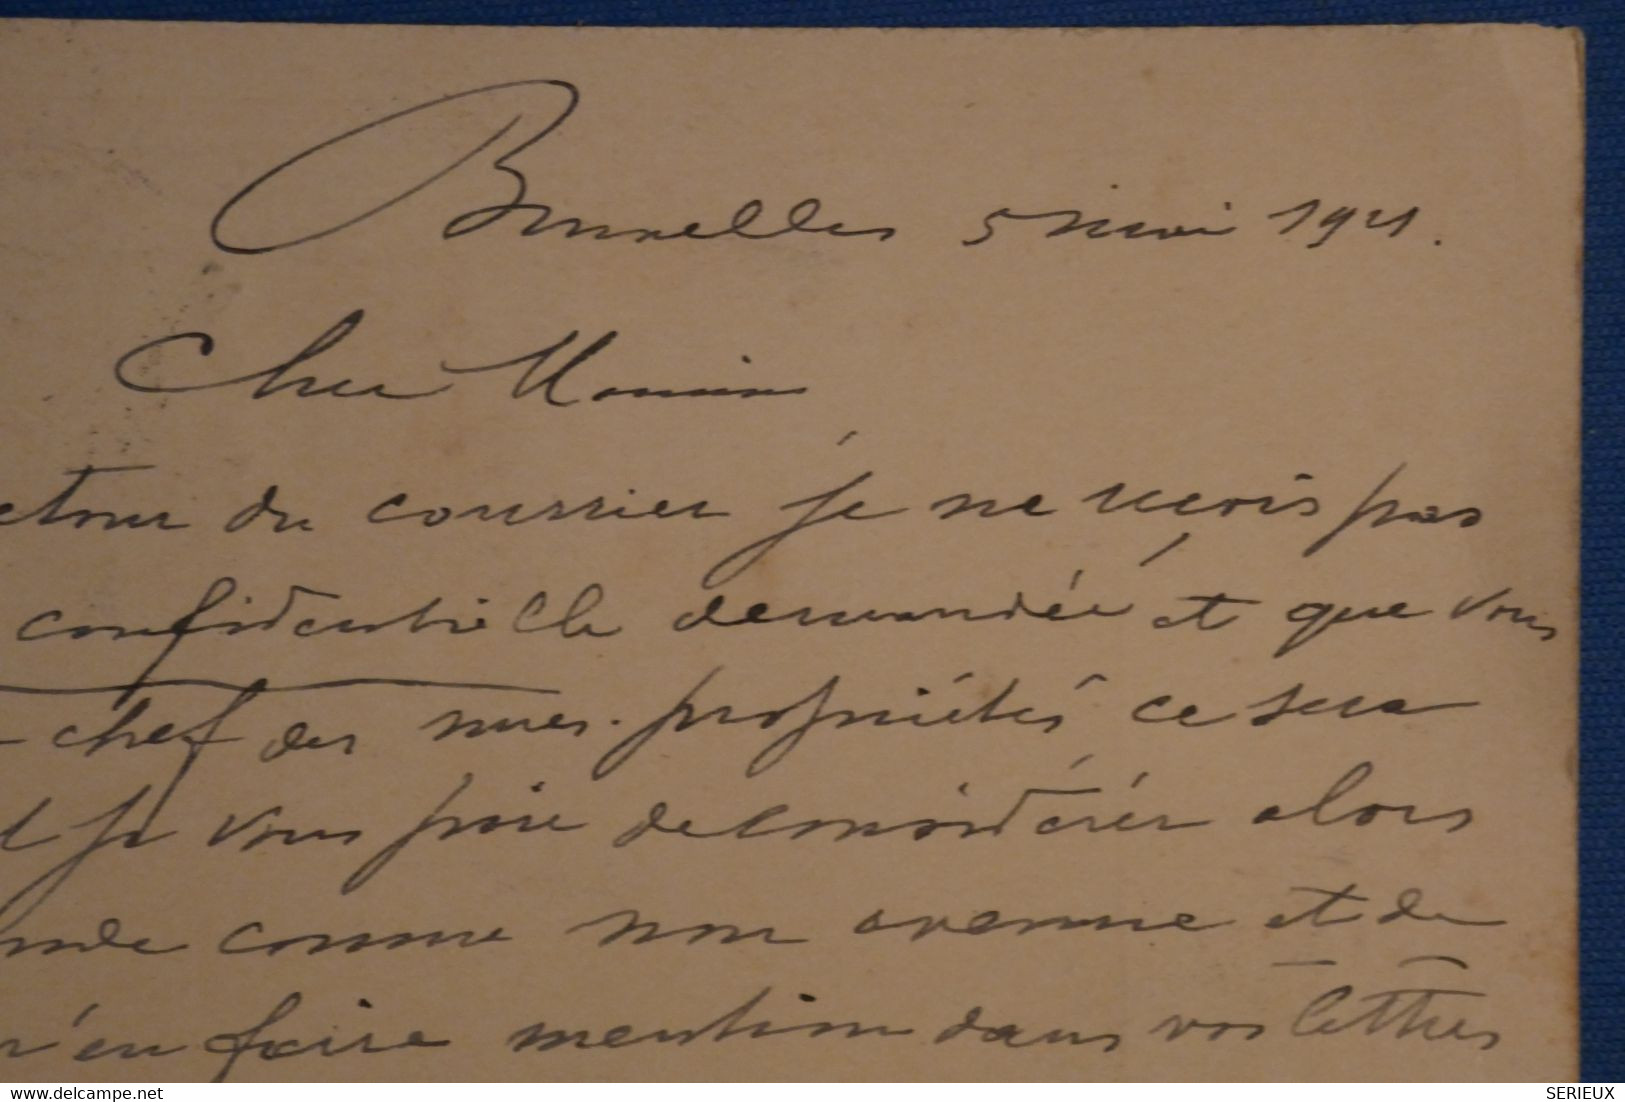 Bruxelles 5 mai 1921.
Cher Monsieur
etour du courrier je ne reçois pas
confidentielle demandée et que vous
chef des mes propriétés ce sera
je vous prie de considérer alors
nde comme non avenue et de
n'en faire mention dans vos lettres
delcampe.net
SERIEUX